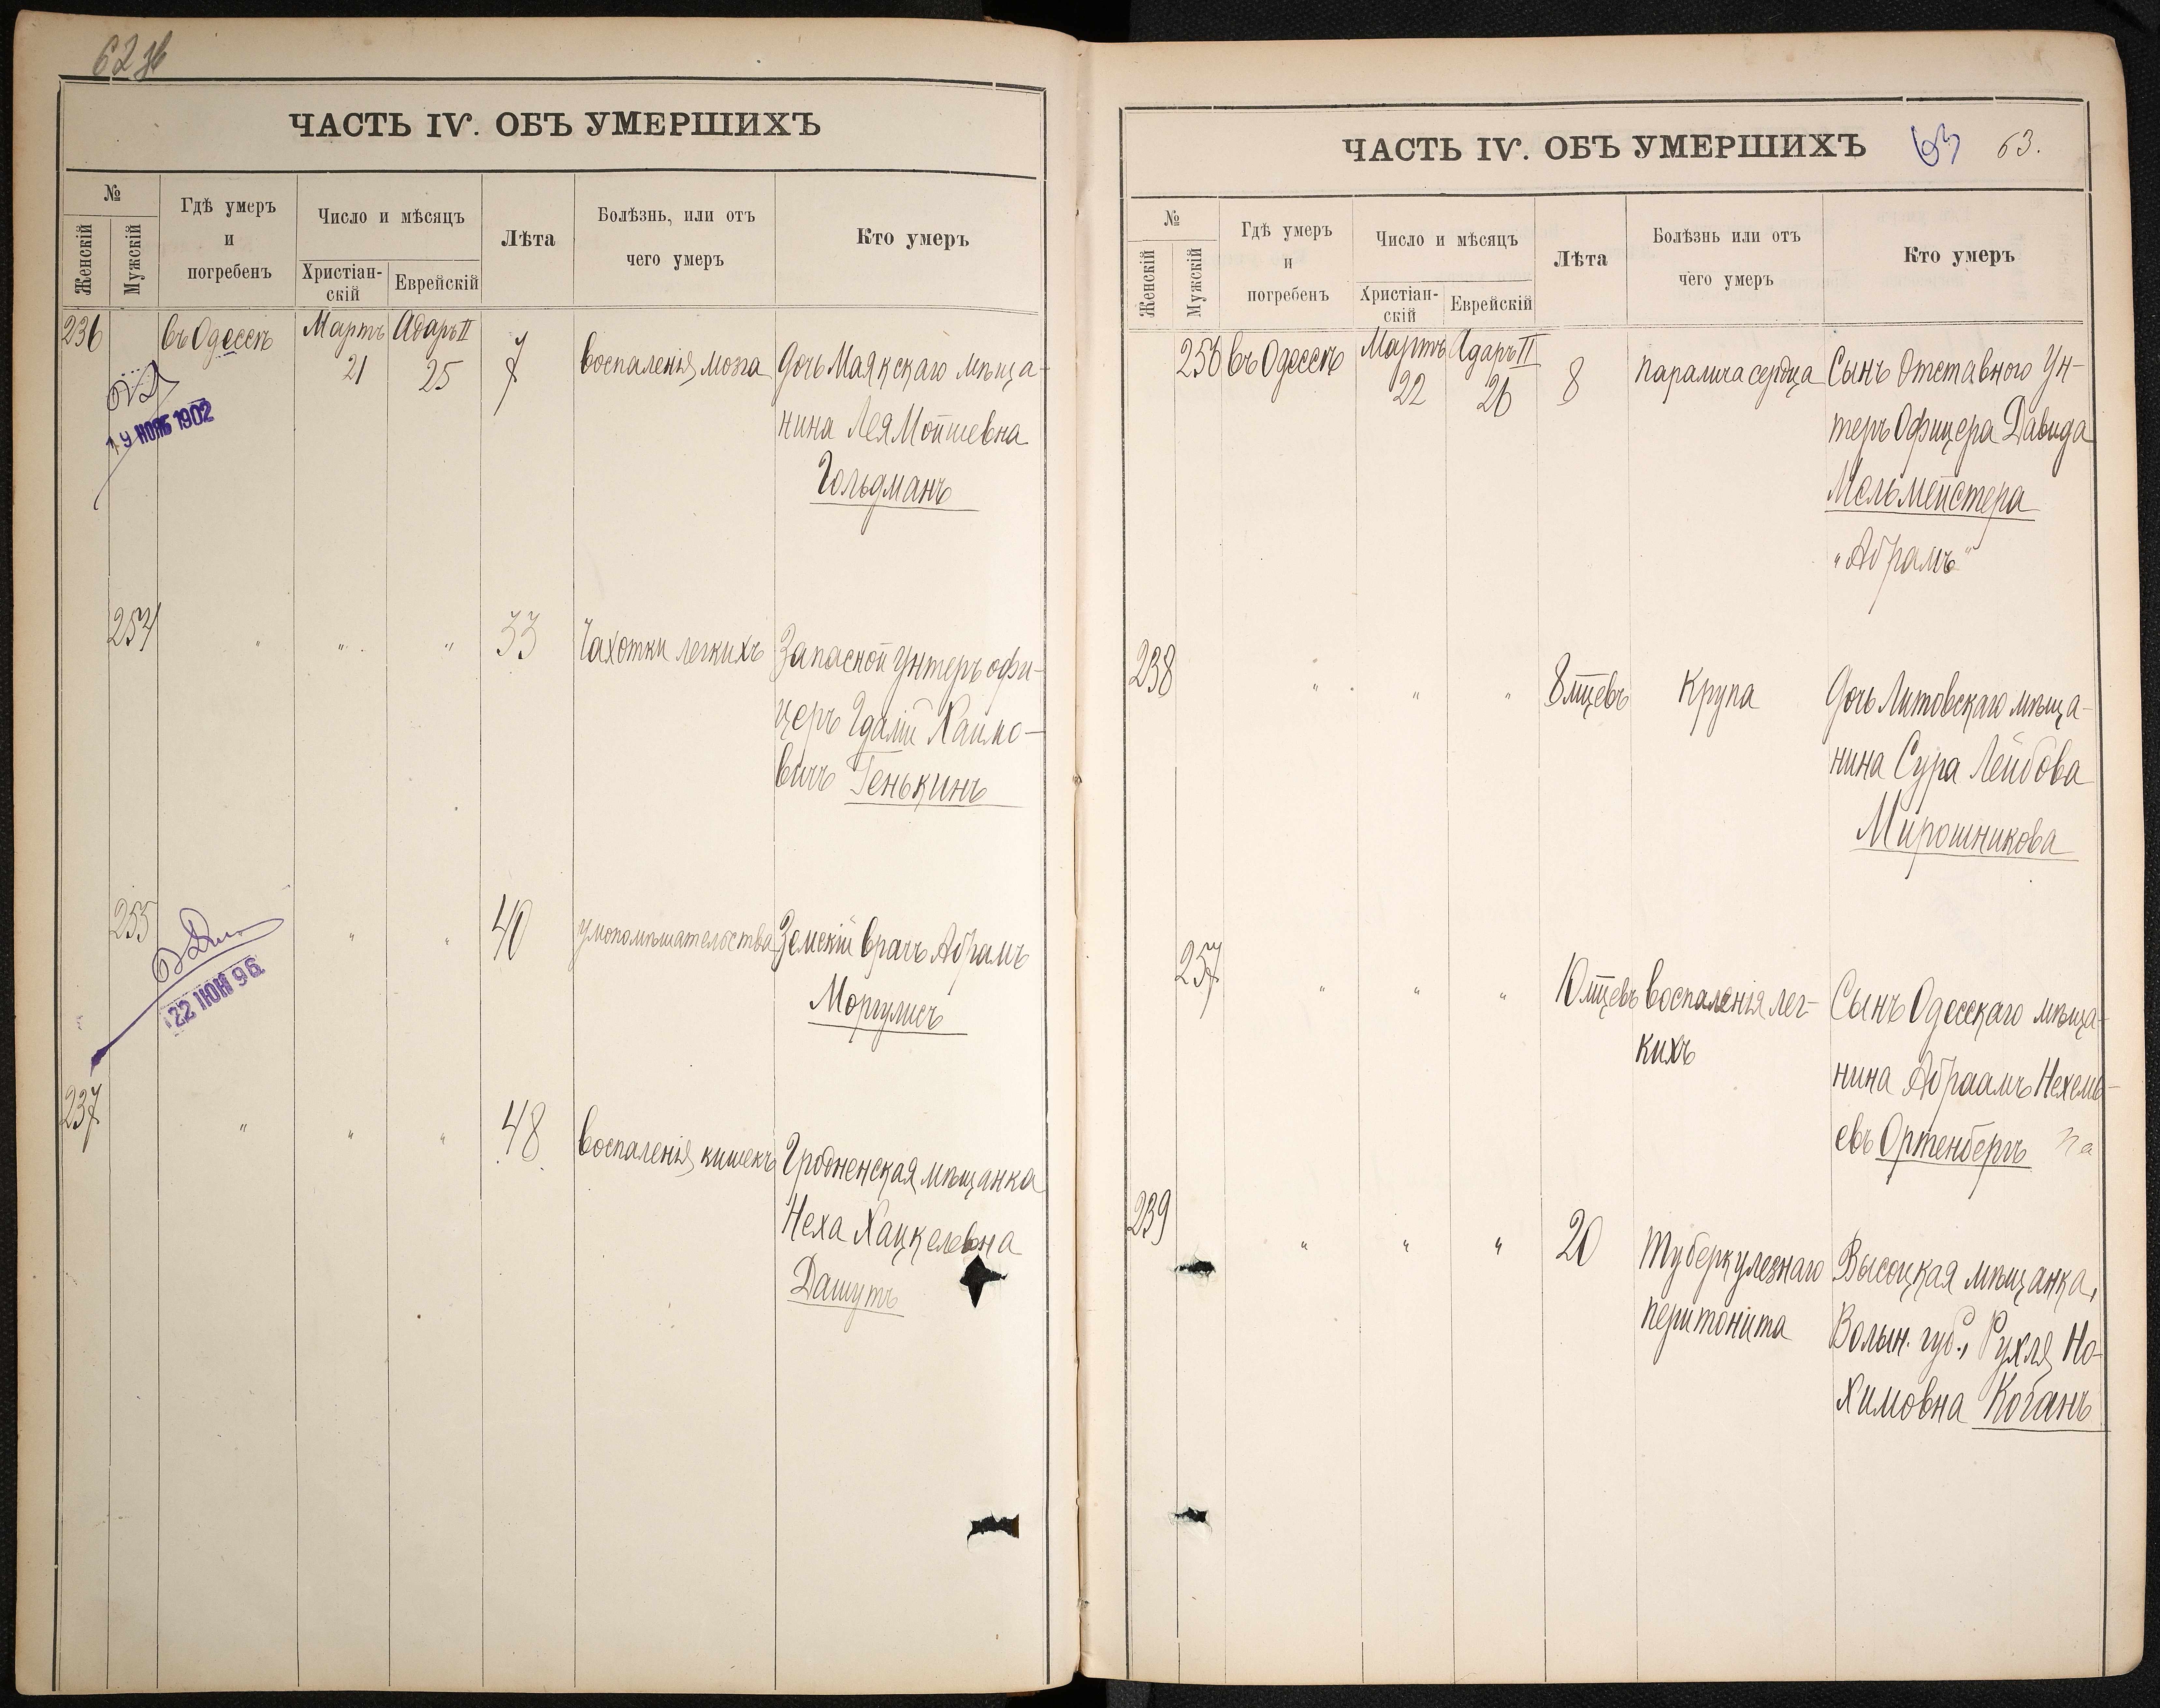 62 зв
ЧАСТЬ IV. ОБЪ УМЕРШИХЪ
№
Женскій
Мужскій
Гдѣ умеръ
и
погребенъ
Число и мѣсяцъ
Христіан-
скій
Еврейскій
Лѣта
Болѣзнь, или отъ
чего умеръ
Кто умеръ
236
въ Одессѣ
Мартъ
21
Адаръ II
25
7
воспаленія мозга
Дочь Маякскаго мѣща-
нина Лея Мошиевна
Гольдманъ
19 НОЯБ 1902
254
" " "
33
Чахотки легкихъ
Запасной Унтеръ офи-
церъ Гдалій Хаимо-
вичъ Генькинъ
255
" "
40
умопомѣшательства
Земскій врачъ Абрамъ
Моргулисъ
22 ІЮН 96
237
" " "
48
воспаленія кишекъ
Гродненская мѣщанка
Неха Хацкелевна
Дашутъ
ЧАСТЬ IV. ОБЪ УМЕРШИХЪ
63
63.
№
Женскій
Мужскій
Гдѣ умеръ
и
погребенъ
Число и мѣсяцъ
Христіан-
скій
Еврейскій
Лѣта
Болѣзнь или отъ
чего умеръ
Кто умеръ
256
въ Одессѣ
Мартъ
22
Адаръ II
26
8
паралича сердца
Сынъ Отставного Ун-
теръ Офицера Давида
Мельмейстера
"Абрамъ"
238
" " "
8 мцевъ
Крупа
Дочь Литовскаго мѣща-
нина Сура Лейбова
Мирошникова
257
" " "
10 мцевъ
воспаленія лег-
кихъ
Сынъ Одесскаго мѣща-
нина Абраамъ Нехемь-
евъ Ортенбергъ
239
" " "
20
Туберкулезнаго
перитонита
Высоцкая мѣщанка,
Волын. губ., Рухля Но-
химовна Коганъ